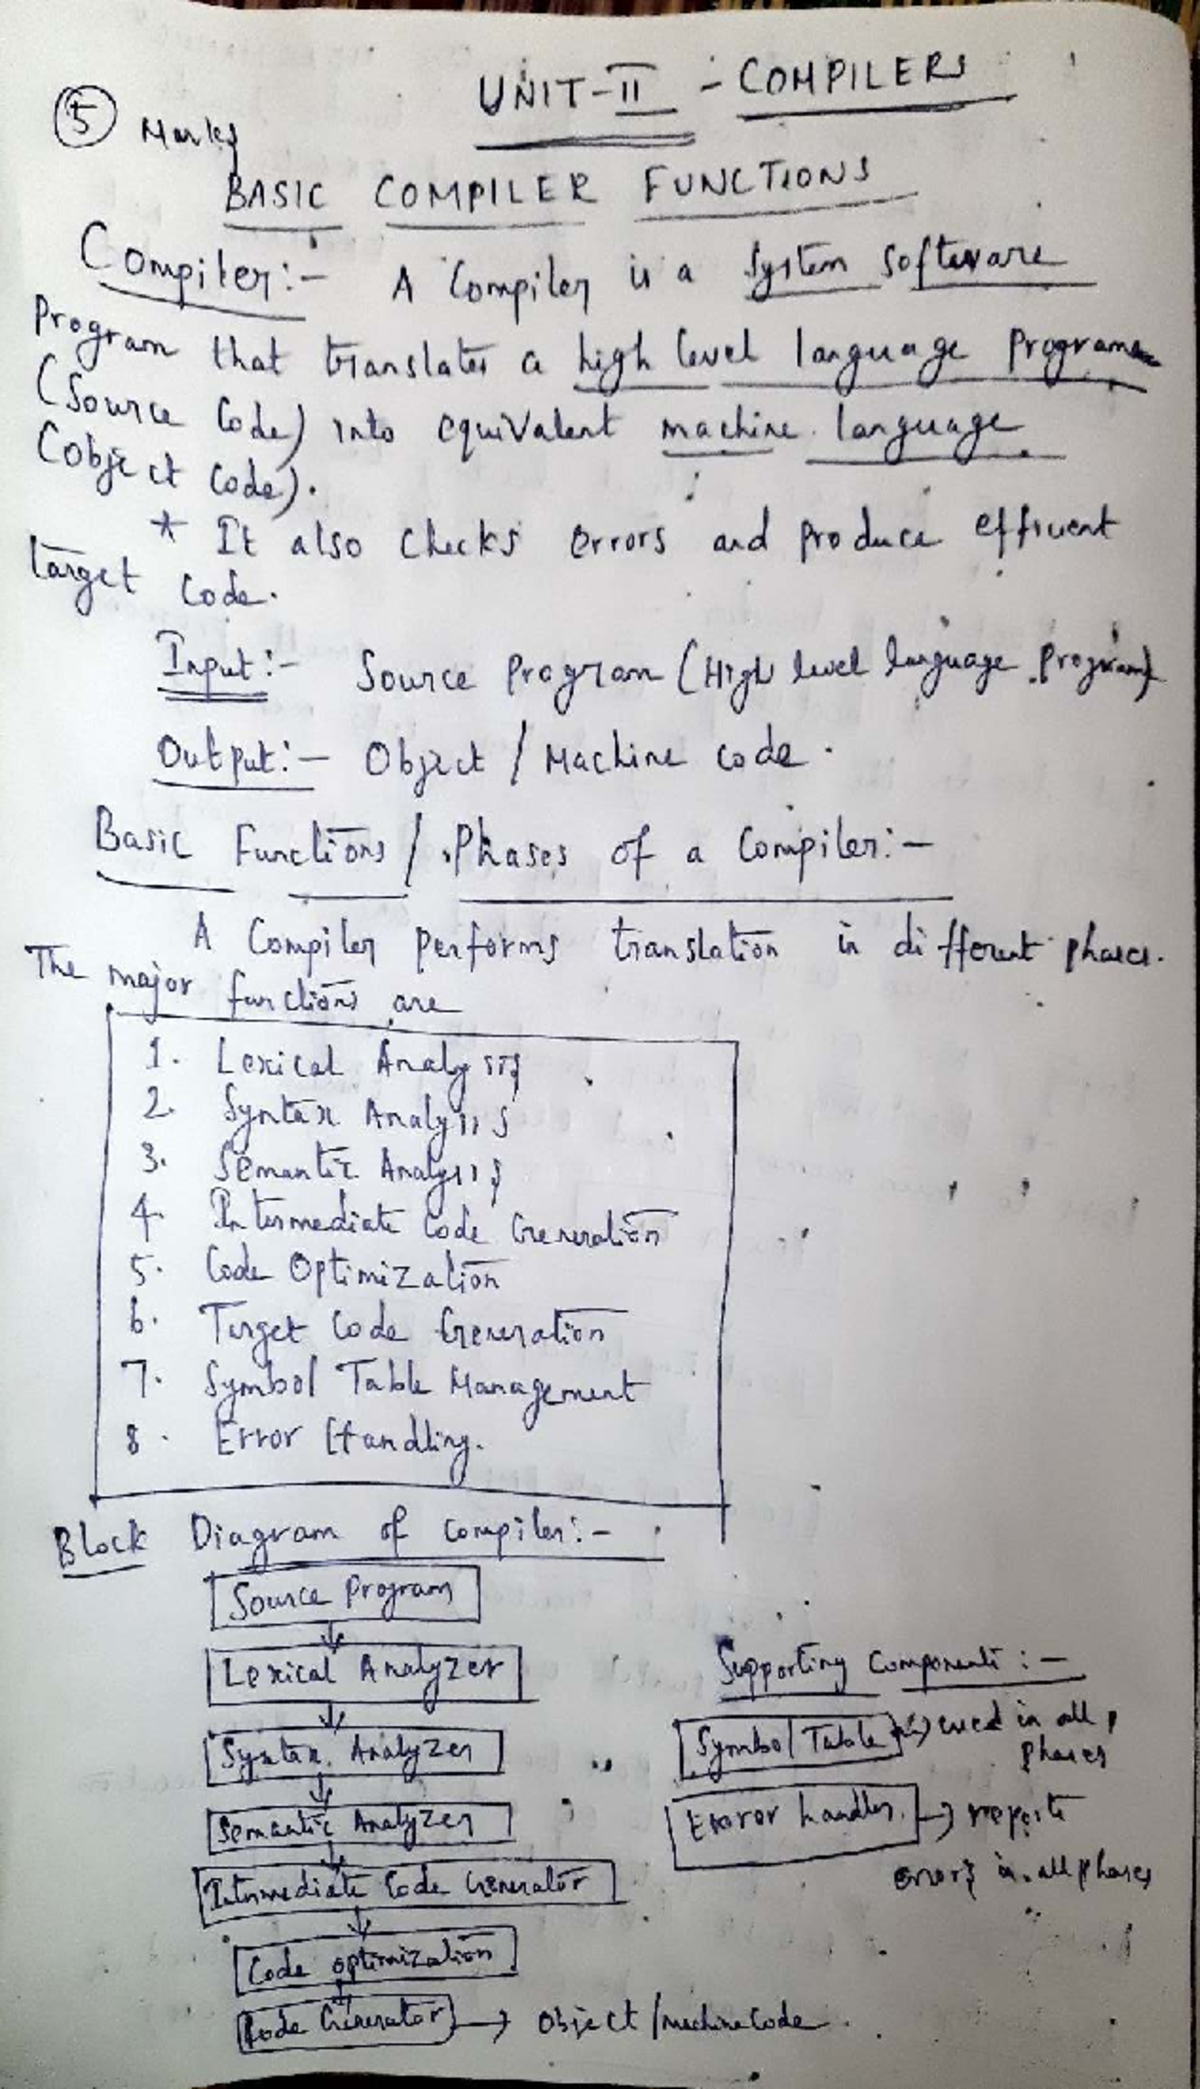 UNIT-II - COMPILERS
5 Marks
BASIC COMPILER FUNCTIONS
Compiler:- A Compiler is a System Software
Program that translates a high level language Program
(Source Code) into equivalent machine language
(object Code).
* It also checks errors and produce efficient
target code.
Input:- Source Program (High level language Program)
Output:- Object / Machine code.
Basic Functions / Phases of a Compiler:-
A Compiler performs translation in different phases.
The major functions are
1. Lexical Analysis
2. Syntax Analysis
3. Semantic Analysis
4. Intermediate Code Generation
5. Code Optimization
6. Target Code Generation
7. Symbol Table Management
8. Error Handling.
Block Diagram of compiler:-
Source Program
Lexical Analyzer
Syntax Analyzer
Semantic Analyzer
Intermediate Code Generator
Code optimization
Code Generator → Object/machine code.
Supporting Components:-
Symbol Table → used in all
phases
Error handler. → reports
errors in all phases